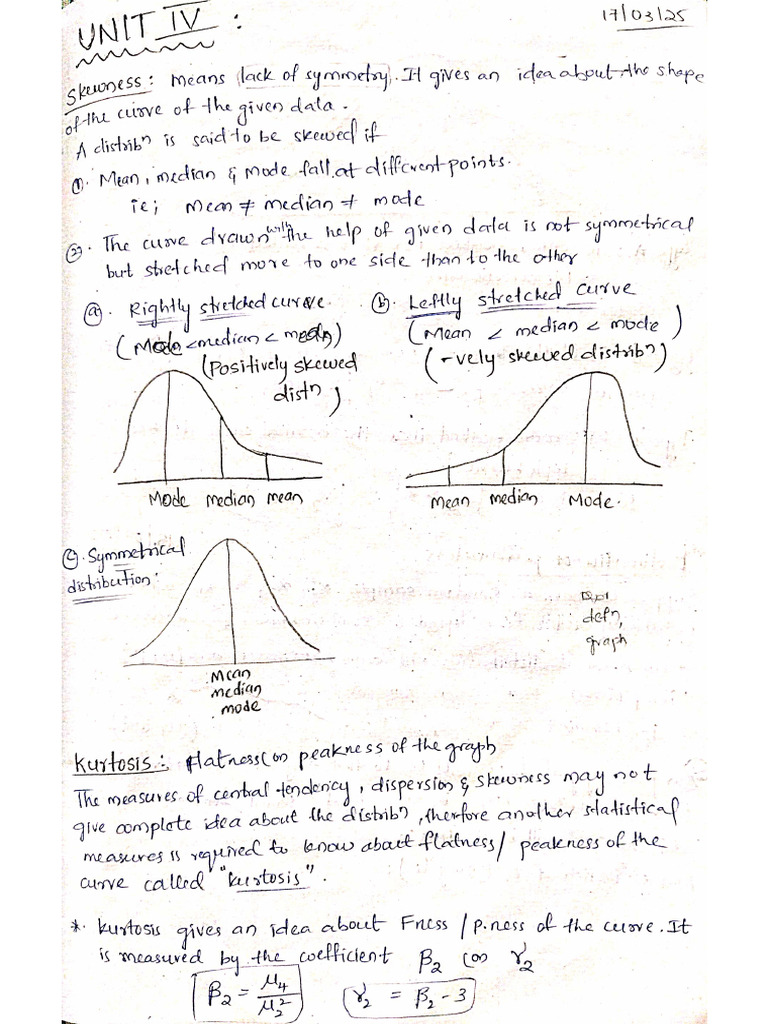 UNIT IV :
17/03/25
Skewness : means lack of symmetry. It gives an idea about the shape
of the curve of the given data.
A distribⁿ is said to be skewed if
①. Mean, median & Mode fall at different points.
ie; Mean ≠ median ≠ mode
②. The curve drawn with the help of given data is not symmetrical
but stretched more to one side than to the other
ⓐ. Rightly stretched curve.
(Mode < median < mean)
(Positively skewed
distⁿ)
Mode median mean
ⓑ. Leftly stretched curve
(Mean < median < mode)
(-vely skewed distribⁿ)
Mean median Mode.
ⓒ. Symmetrical
distribution:
Mean
median
mode
defn,
graph
Kurtosis : flatness (or) peakness of the graph
The measures of central tendency, dispersion & skewness may not
give complete idea about the distribⁿ, therfore another statistical
measures is required to know about flatness/ peakness of the
curve called "kurtosis".
*. kurtosis gives an idea about Fness / P.ness of the curve. It
is measured by the coefficient β₂ (or) γ₂
β₂ = μ₄/μ₂² γ₂ = β₂ - 3